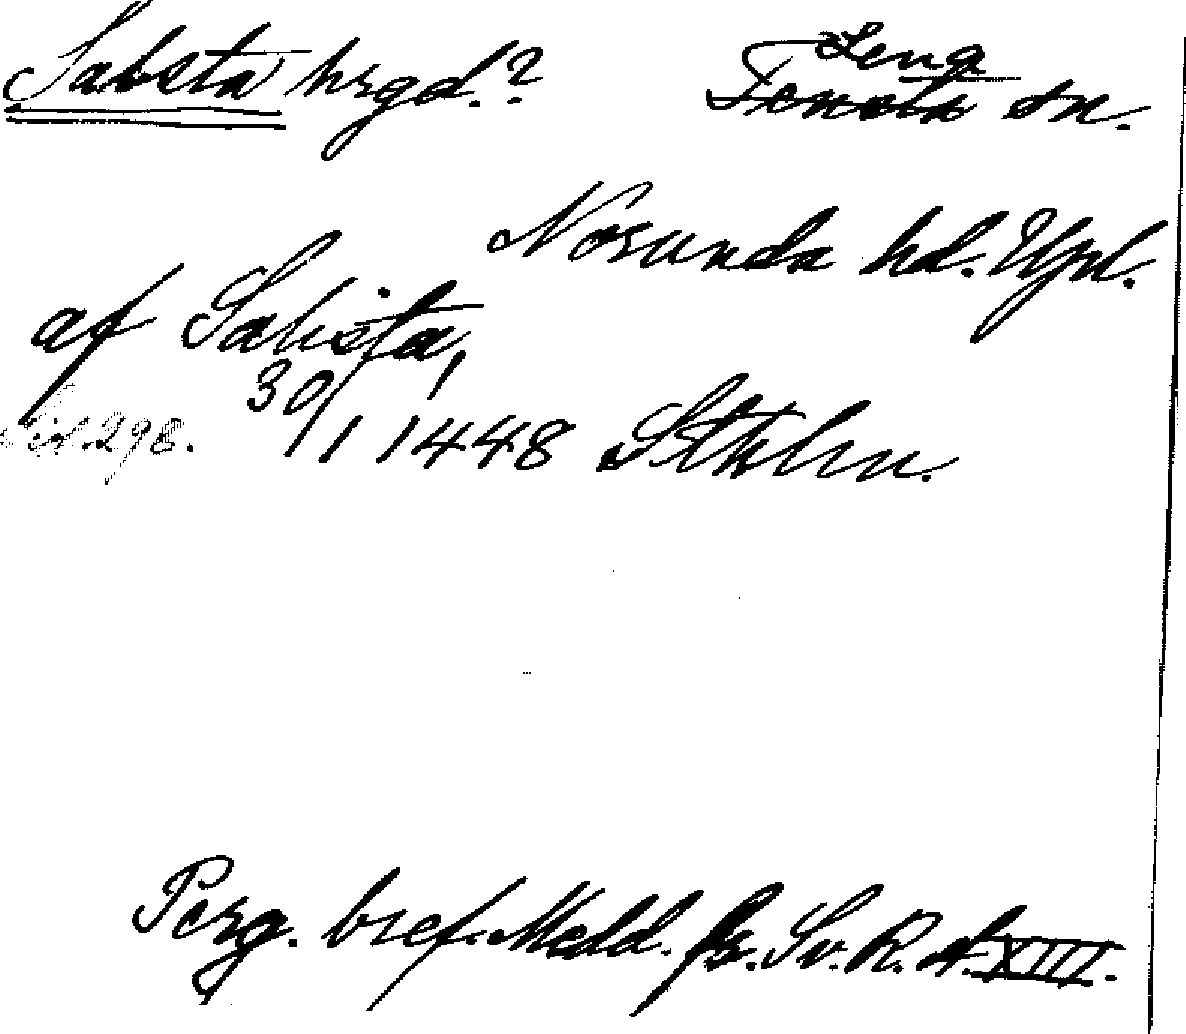 Sabsta hrgd.? Lena
Tensta sn.
Norunda hd. Upl.
af Salista,
30/1 1448 Sthlm.
298.
Perg. bref. Medd. fr. Sv. R. A. XIII.